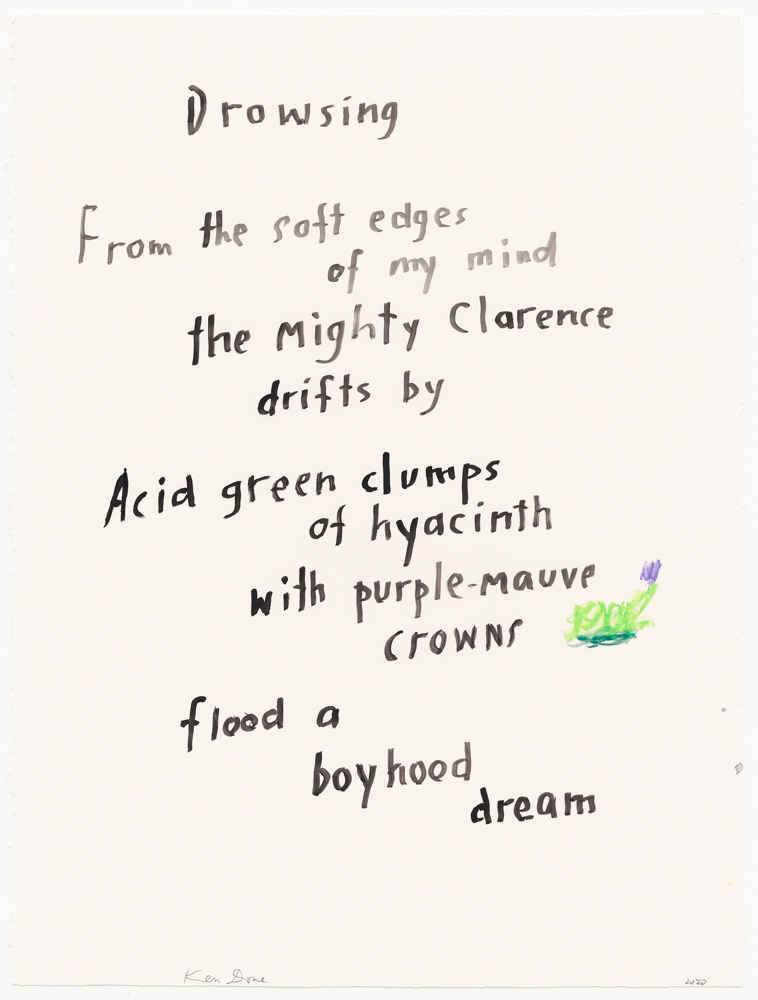 Drowsing
From the soft edges
of my mind
the mighty Clarence
drifts by
Acid green clumps
of hyacinth
with purple-mauve
crowns
flood a
boyhood
dream
Ken Done
2020